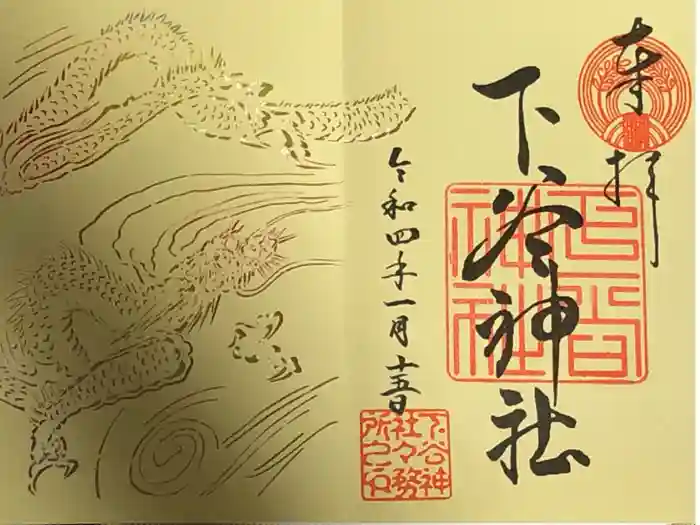 奉拝
下谷神社
令和四年一月十五日
下谷神社
下谷神
社々務
所之印